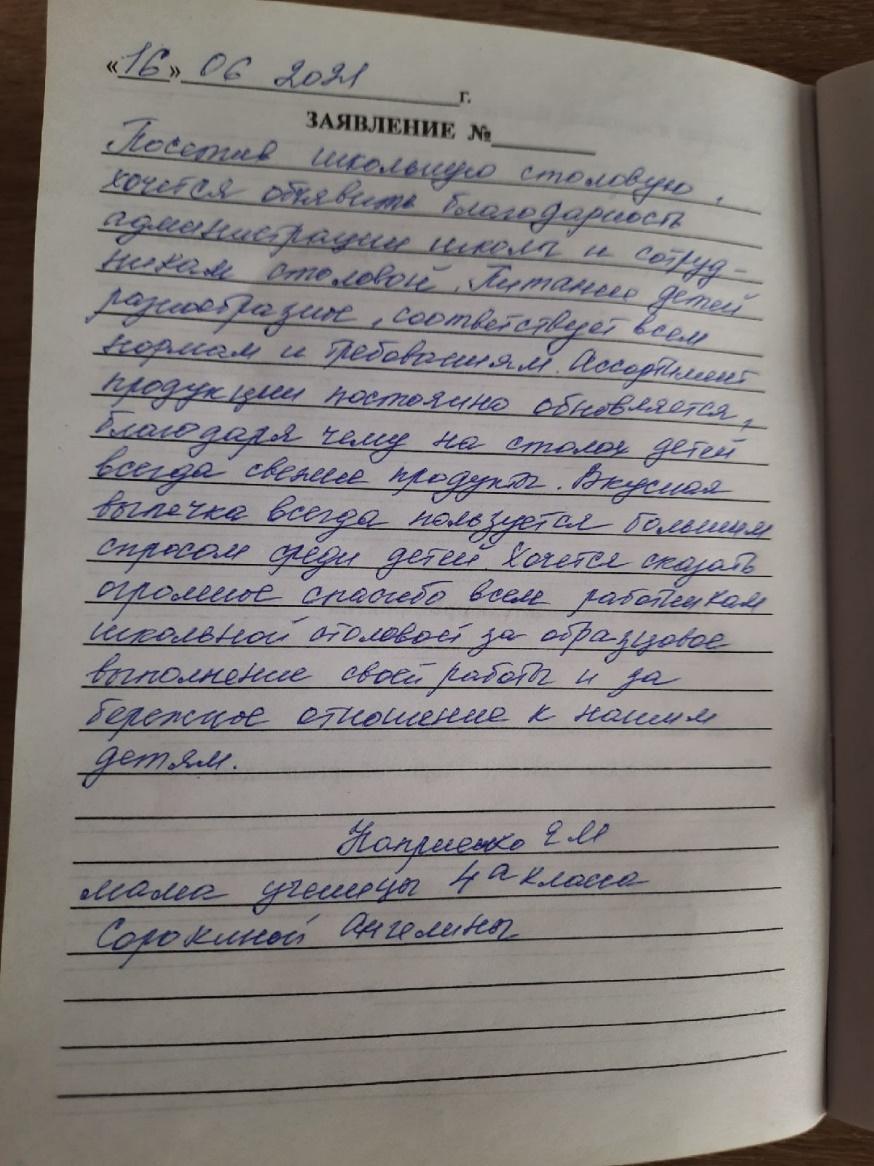 «16» 06 2021 г.
ЗАЯВЛЕНИЕ №
Посетив школьную столовую,
хочется объявить благодарность
администрации школы и сотруд-
никам столовой. Питание детей
разнообразное, соответствует всем
нормам и требованиям. Ассортимент
продукции постоянно обновляется,
благодаря чему на столах детей
всегда свежие продукты. Вкусная
выпечка всегда пользуется большим
спросом среди детей. Хочется сказать
огромное спасибо всем работникам
школьной столовой за образцовое
выполнение своей работы и за
бережное отношение к нашим
детям.
Коприенко Е М
мама ученицы 4 а класса
Сорокиной Ангелины